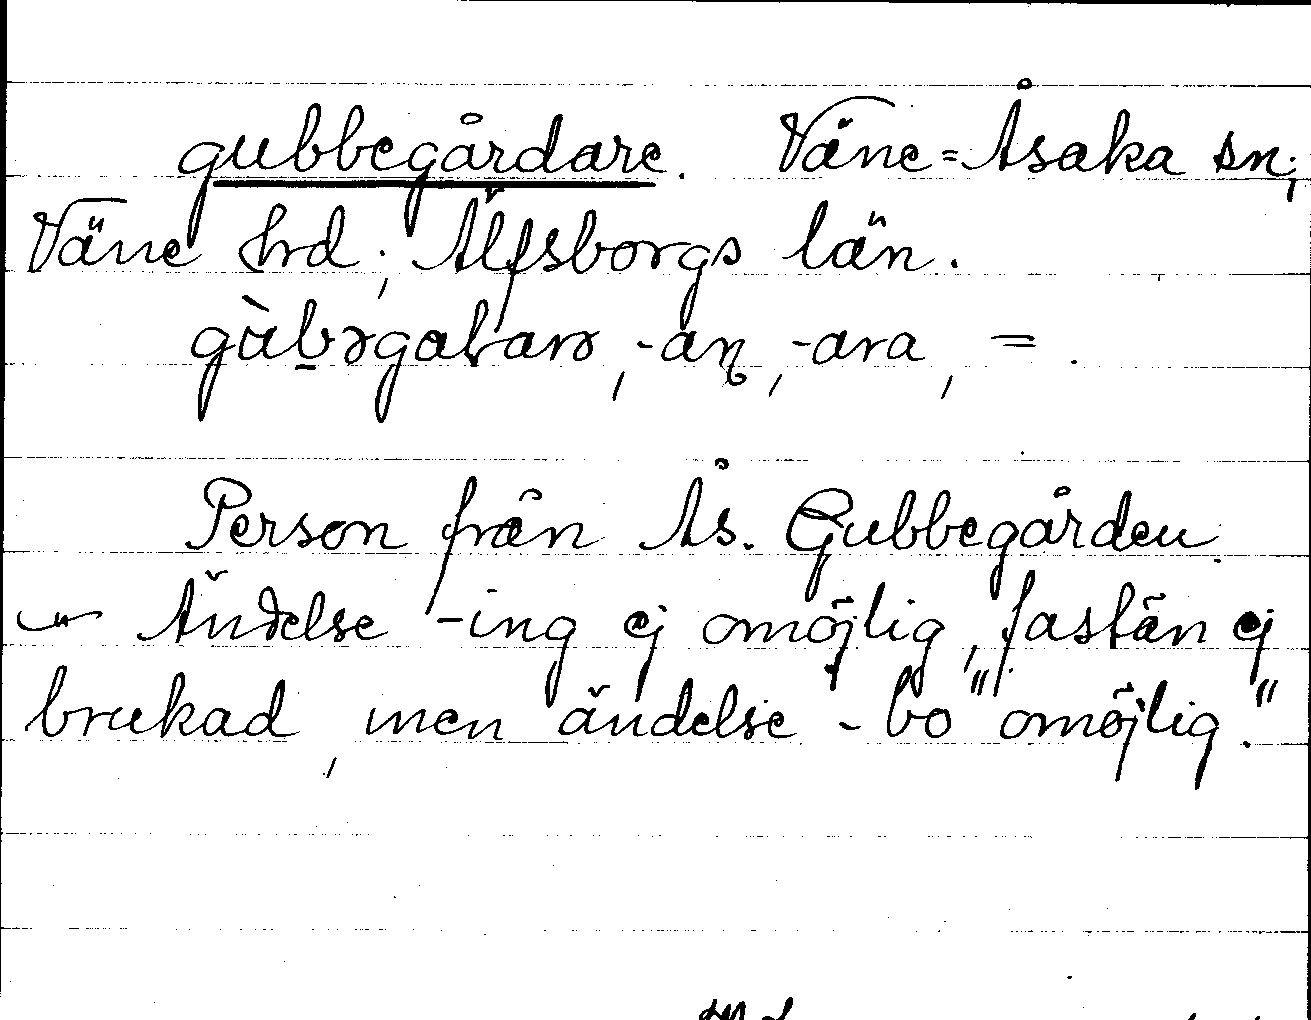 gubbegårdare. Väne-Åsaka sn,
Väne hrd, Älfsborgs län.
-ara, =.
Person från Ås. Gubbegården.
Ändelse -ing ej omöjlig, fastän ej
brukad, men ändelse -bo "omöjlig."